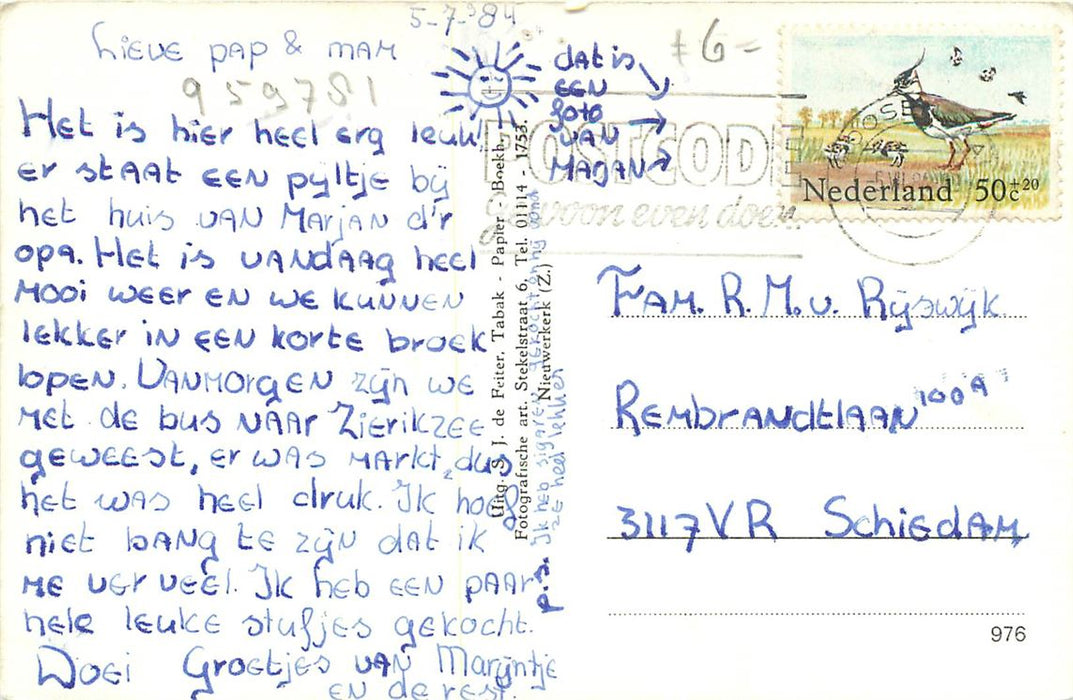 5-7-'84
Lieve pap & mam
959781
Het is hier heel erg leuk
er staat een pijltje bij
het huis van Marjan d'r
opa. Het is vandaag heel
mooi weer en we kunnen
lekker in een korte broek
lopen. Vanmorgen zijn we
met de bus naar Zierikzee
geweest, er was markt, dus
het was heel druk. Ik hoef
niet bang te zijn dat ik
me verveel. Ik heb een paar
hele leuke stufjes gekocht.
Doei Groetjes van Marijntje
en de rest.
p.s. Ik heb sigaren gekocht en hij vond
ze heel lekker
dat is
een
foto
van
Majan
Uitg. S. J. de Feiter, Tabak - Papier - Boekh.
Fotografische art. Stekelstraat 6, Tel. 01114 - 1753.
Nieuwerkerk (Z.)
6-
POSTCODE
gewoon even doen.
GOES
Nederland 50c+20
Fam. R. M. v. Rijswijk
Rembrandtlaan 100A
3117VR Schiedam
976